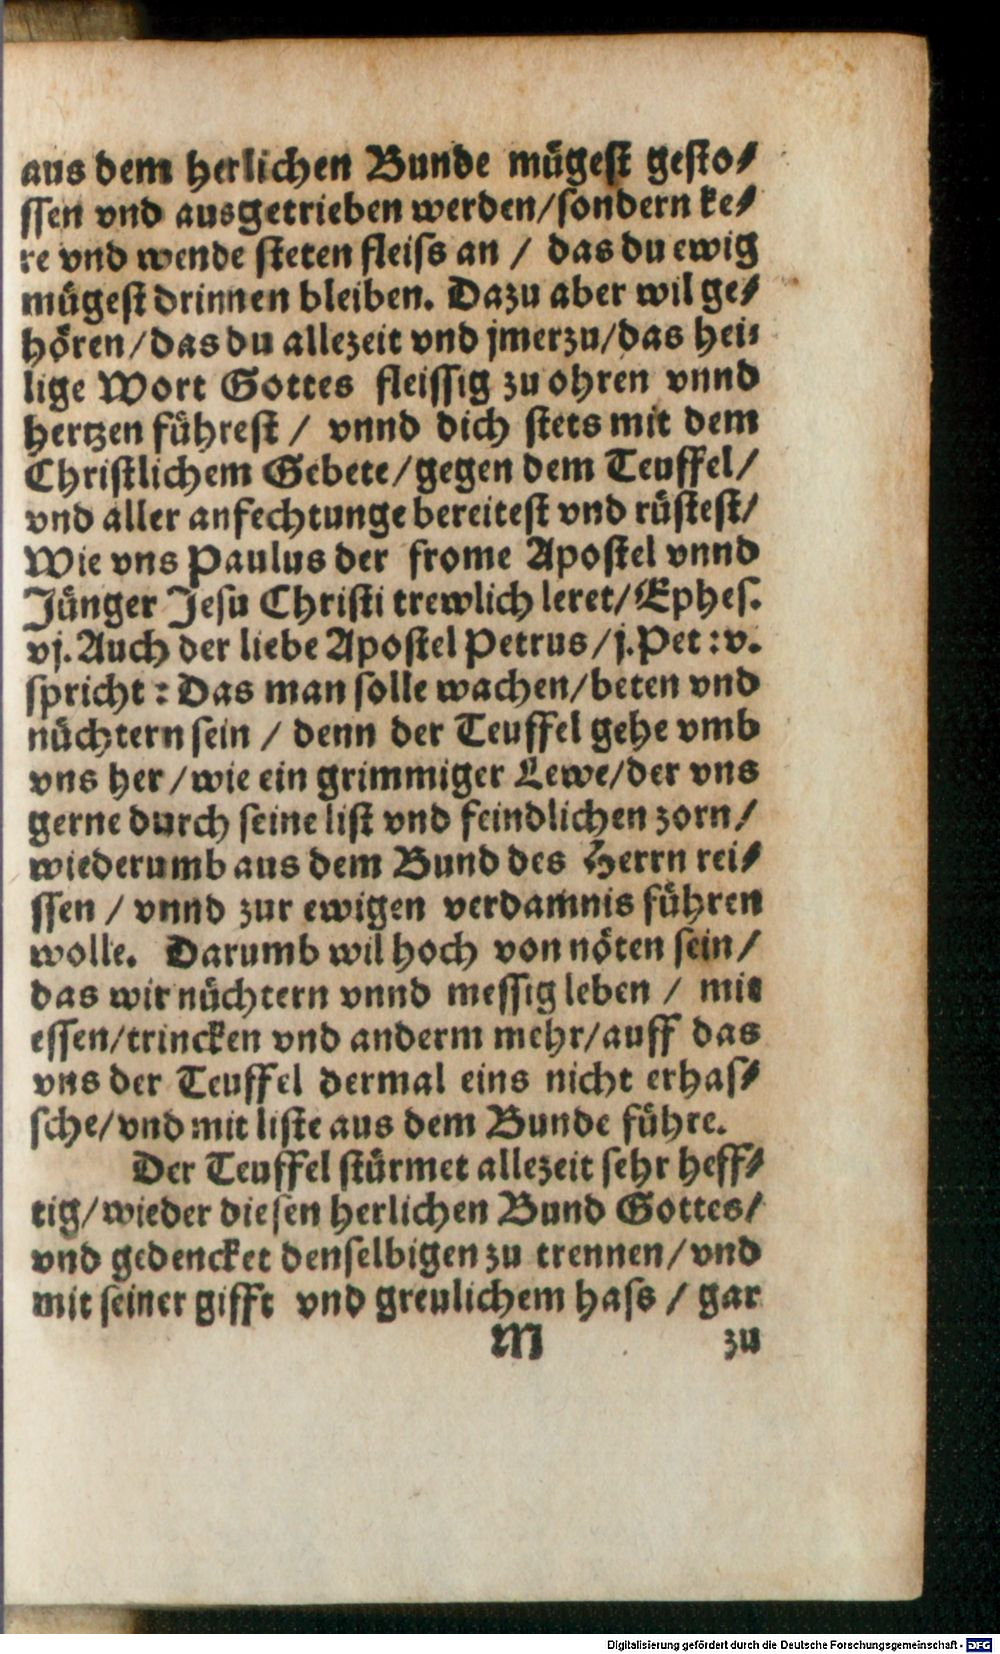 aus dem herlichen Bunde mügest gesto⸗
ssen vnd ausgetrieben werden/sondern ke⸗
re vnd wende steten fleiss an / das du ewig
mügest drinnen bleiben. Dazu aber wil ge⸗
hören/das du allezeit vnd jmerzu/das hei⸗
lige Wort Gottes fleissig zu ohren vnnd
hertzen führest / vnnd dich stets mit dem
Christlichem Gebete/gegen dem Teuffel/
vnd aller anfechtunge bereitest vnd rüstest/
Wie vns Paulus der frome Apostel vnnd
Jünger Jesu Christi trewlich leret/Ephes.
vj. Auch der liebe Apostel Petrus/j.Pet:v.
spricht: Das man solle wachen/beten vnd
nüchtern sein / denn der Teuffel gehe vmb
vns her/wie ein grimmiger Lewe/der vns
gerne durch seine list vnd feindlichen zorn/
wiederumb aus dem Bund des Herrn rei⸗
ssen / vnnd zur ewigen verdamnis führen
wolle. Darumb wil hoch von nöten sein/
das wir nüchtern vnnd messig leben / mit
essen/trincken vnd anderm mehr/auff das
vns der Teuffel dermal eins nicht erhas⸗
sche/vnd mit liste aus dem Bunde führe.
Der Teuffel stürmet allezeit sehr heff⸗
tig/wieder diesen herlichen Bund Gottes/
vnd gedencket denselbigen zu trennen/vnd
mit seiner gifft vnd greulichem hass / gar
M zu
Digitalisierung gefördert durch die Deutsche Forschungsgemeinschaft - DFG